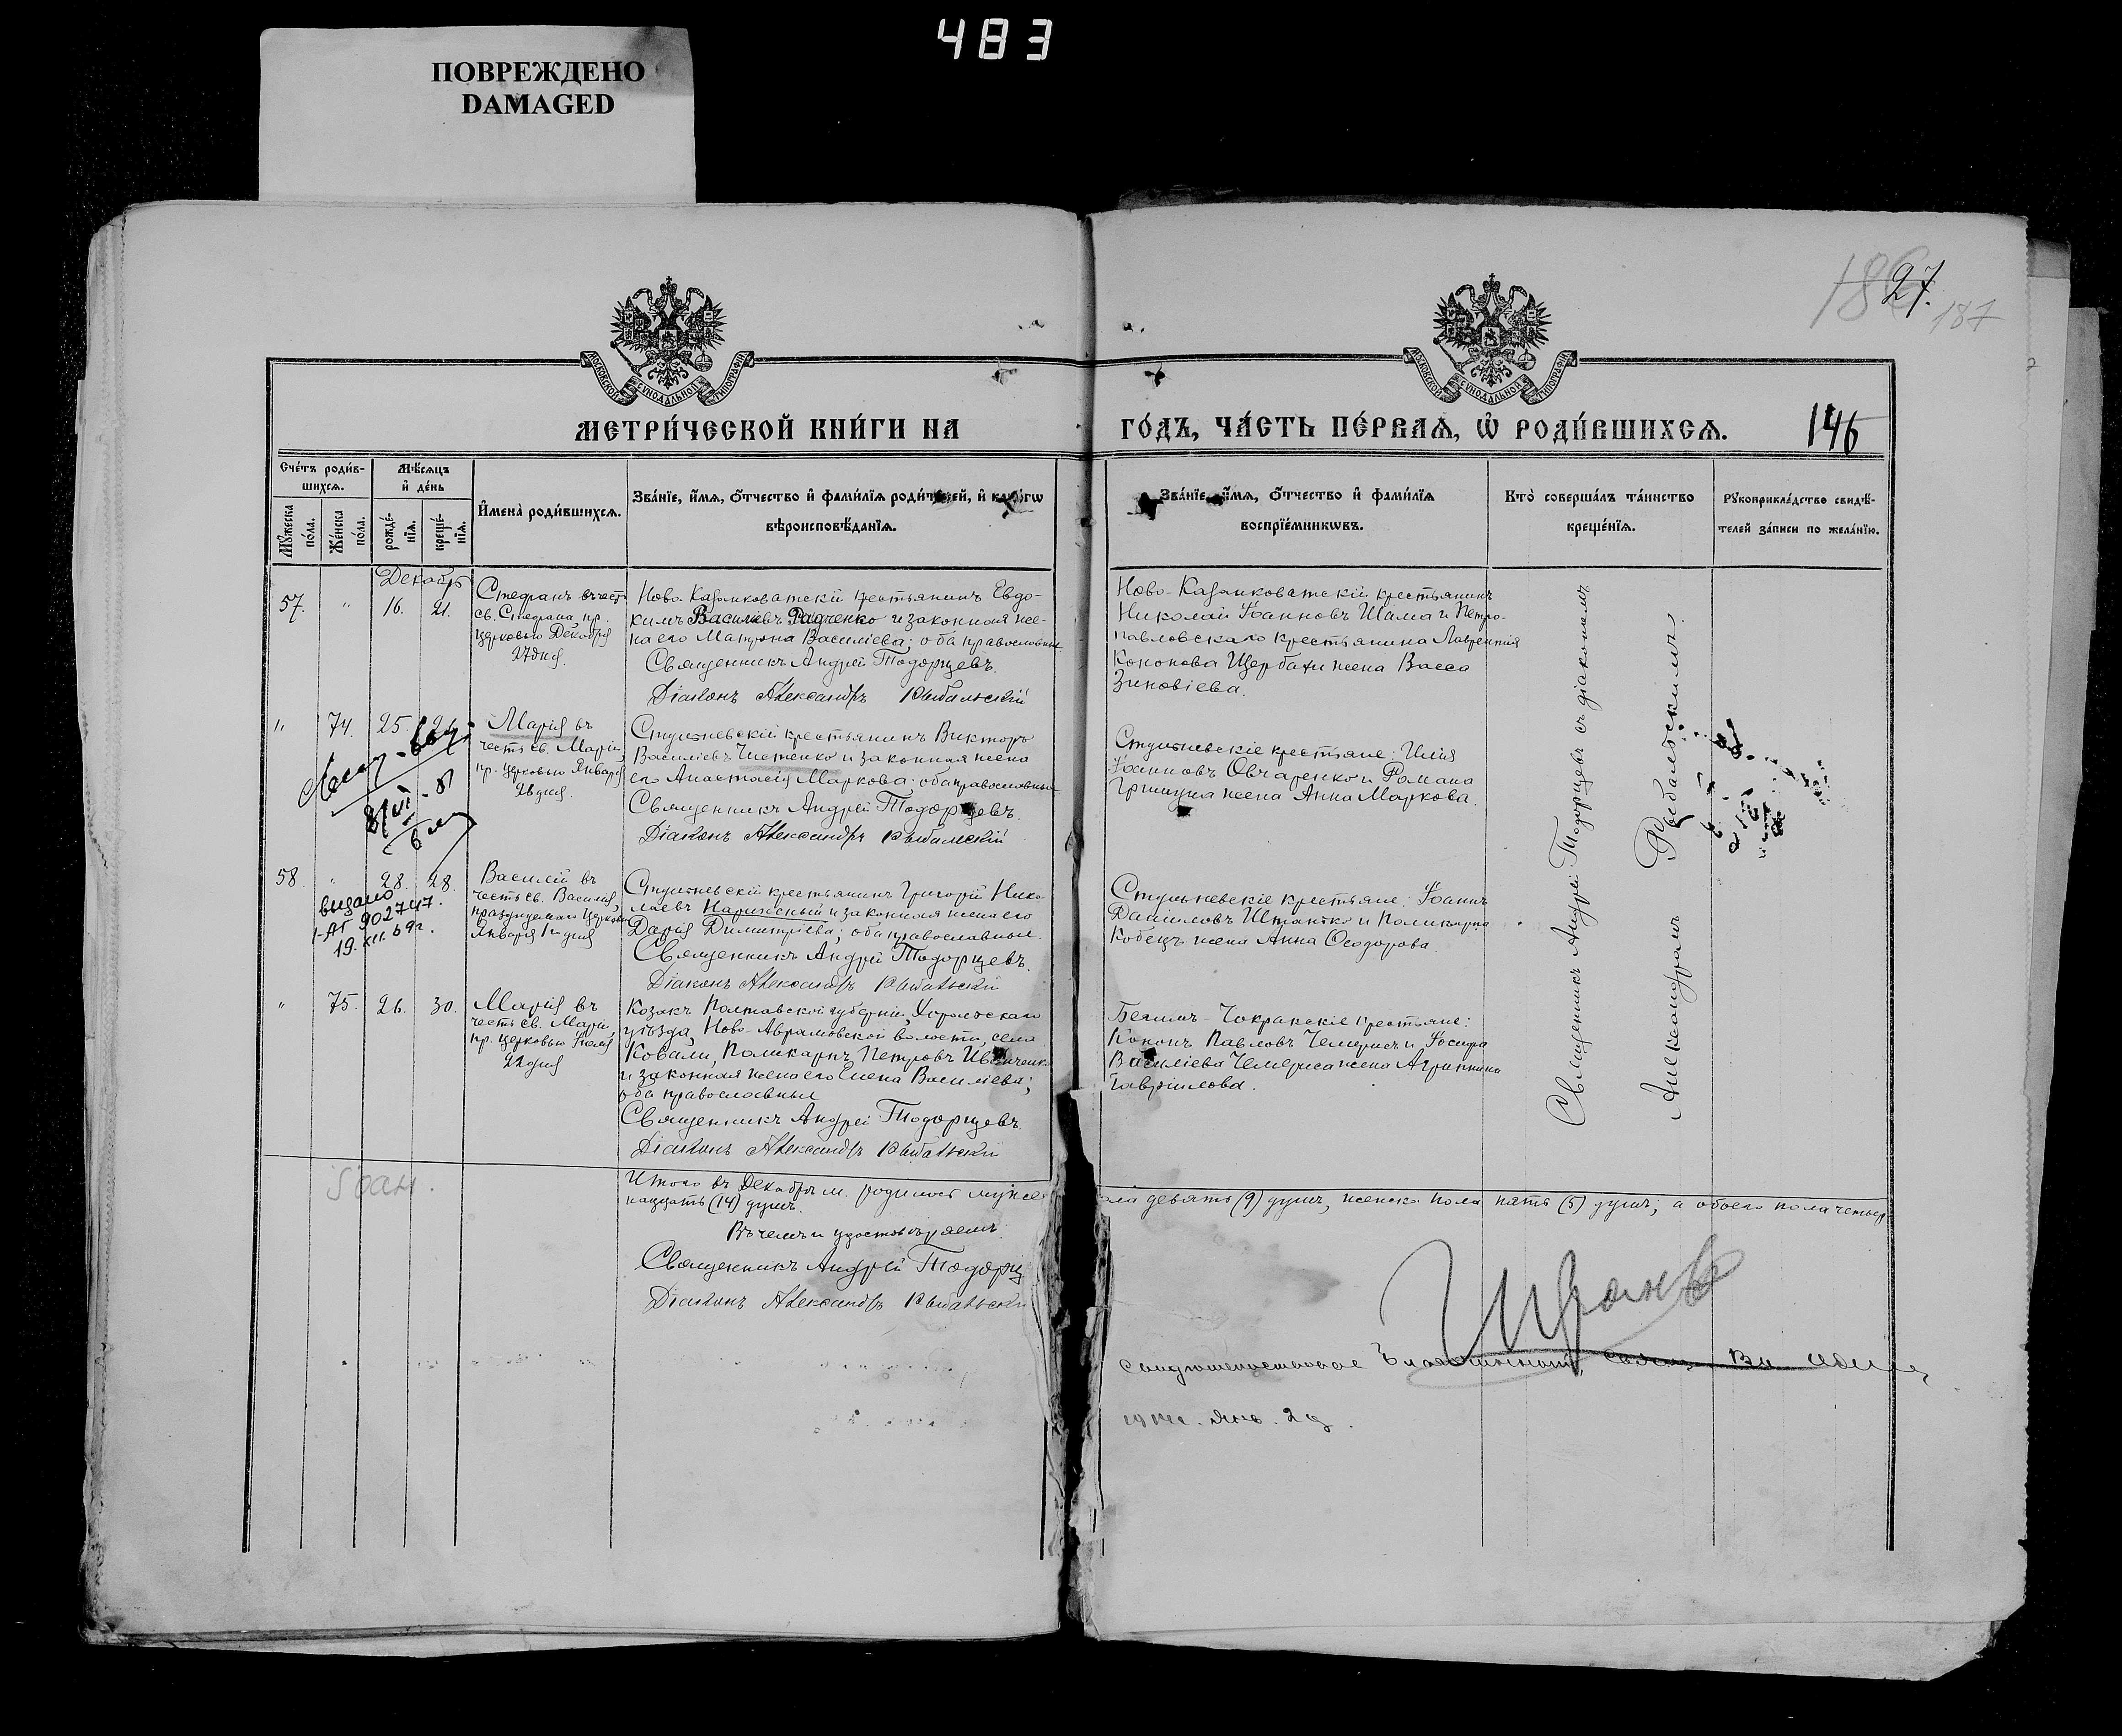 483
ПОВРЕЖДЕНО
DAMAGED
27.
187
146
МОСКОВСКОЙ СѴНОДАЛЬНОЙ ТИПОГРАФІИ
МОСКОВСКОЙ СѴНОДАЛЬНОЙ ТИПОГРАФІИ
МЕТРИ́ЧЕСКОЙ КНИ́ГИ НА
ГО́ДЪ, ЧА́СТЬ ПЕ́РВАЯ, Ѡ РОДИ́ВШИХСЯ.
Сче́тъ роди́в-
шихся.
Мѣ́сяцъ
и де́нь
Му́жеска
по́ла.
Же́нска
по́ла.
рожде́-
нія.
креще́-
нія.
Имена̀ роди́вшихся.
Зва́ніе, и́мя, о́тчество и фами́лія роди́телей, и како́гѡ
вѣроисповѣ́данія.
Зва́ніе, и́мя, о́тчество и фами́лія
воспріе́мникѡвъ.
Кто̀ соверша́лъ та́инство
креще́нія.
Рукоприкла́дство свидѣ́-
телей за́писи по жела́нію.
Декабрь
57. " 16. 21.
Стефанъ въ чест
св. Стефана, пр.
церковью Декабря
27 дня.
Ново-Казанковатскій крестьянинъ Евдо-
кимъ Василіевъ Радченко и законная же-
на его Матрона Василіева; оба православные
Священникъ Андрей Тодорцевъ.
Діаконъ Александръ Рыбальскій
Ново-Казанковатскій крестьянинъ
Николай Іоанновъ Шама и Петро-
павловскаго крестьянина Лаврентія
Кононова Щербати жена Васса
Зиновіева.
" 74. 25. 26.
Марія въ
честь св. Маріи,
пр. церковью Января
26 дня.
Викторъ
Василіевъ Чистенко и законная жена
его Анастасія Маркова; оба православные
Священникъ Андрей Тодорцевъ.
Діаконъ Александръ Рыбальскій
крестьяне: Илія
Іоанновъ Овчаренко и Романа
Грищина жена Анна Маркова.
58. " 28. 28.
выдано
I-АГ 902747.
19.XII.69г.
Василій въ
честь св. Василія,
празднуемаго церковью
Января 1го дня
крестьянинъ Григорій Нико-
лаевъ Нарижный и законная жена его
Дарія Димитріева; оба православные.
Священникъ Андрей Тодорцевъ.
Діаконъ Александръ Рыбальскій
крестьяне: Іоаннъ
Даніиловъ Штанько и Поликарпа
Кобецъ жена Анна Ѳеодорова.
" 75. 26. 30.
Марія въ
честь св. Маріи,
пр. церковью Іюля
22 дня
Козакъ Полтавской губерніи, Хорольскаго
уѣзда, Ново-Аврамовской волости, села
Ковали, Поликарпъ Петровъ Иванченко
и законная жена его Елена Василіева;
оба православные
Священникъ Андрей Тодорцевъ.
Діаконъ Александръ Рыбальскій
Бегимъ-Чокракскіе крестьяне:
Кононъ Павловъ Чемерисъ и Іосифа
Василіева Чемериса жена Агриппина
Гавріилова.
Священникъ Андрей Тодорцевъ съ діакономъ
Александромъ Рыбальскимъ.
Итого въ Декабрѣ м. родилось мужес
ола девять (9) душъ, женска пола пять (5) душъ; а обоего пола четыр
надцать (14) душъ.
Въ чемъ и удостовѣряемъ:
Священникъ Андрей Тодорц
Діаконъ Александръ Рыбальскій
Янв. 2 д.